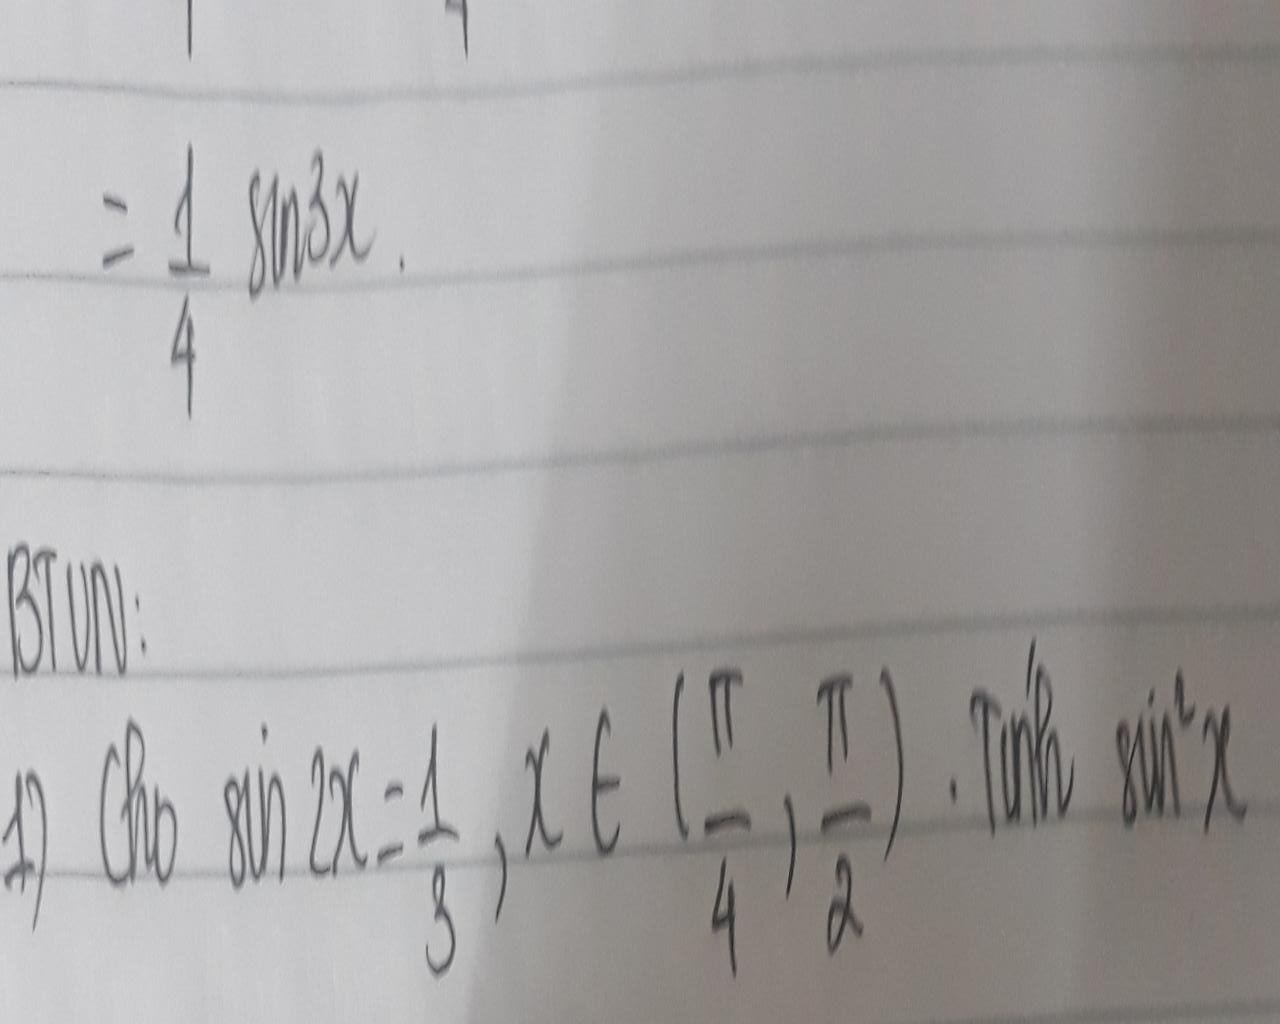 = 1/4 sin3x.
BTVN:
1) Cho sin 2x = 1/3, x ∈ (π/4, π/2). Tính sin²x